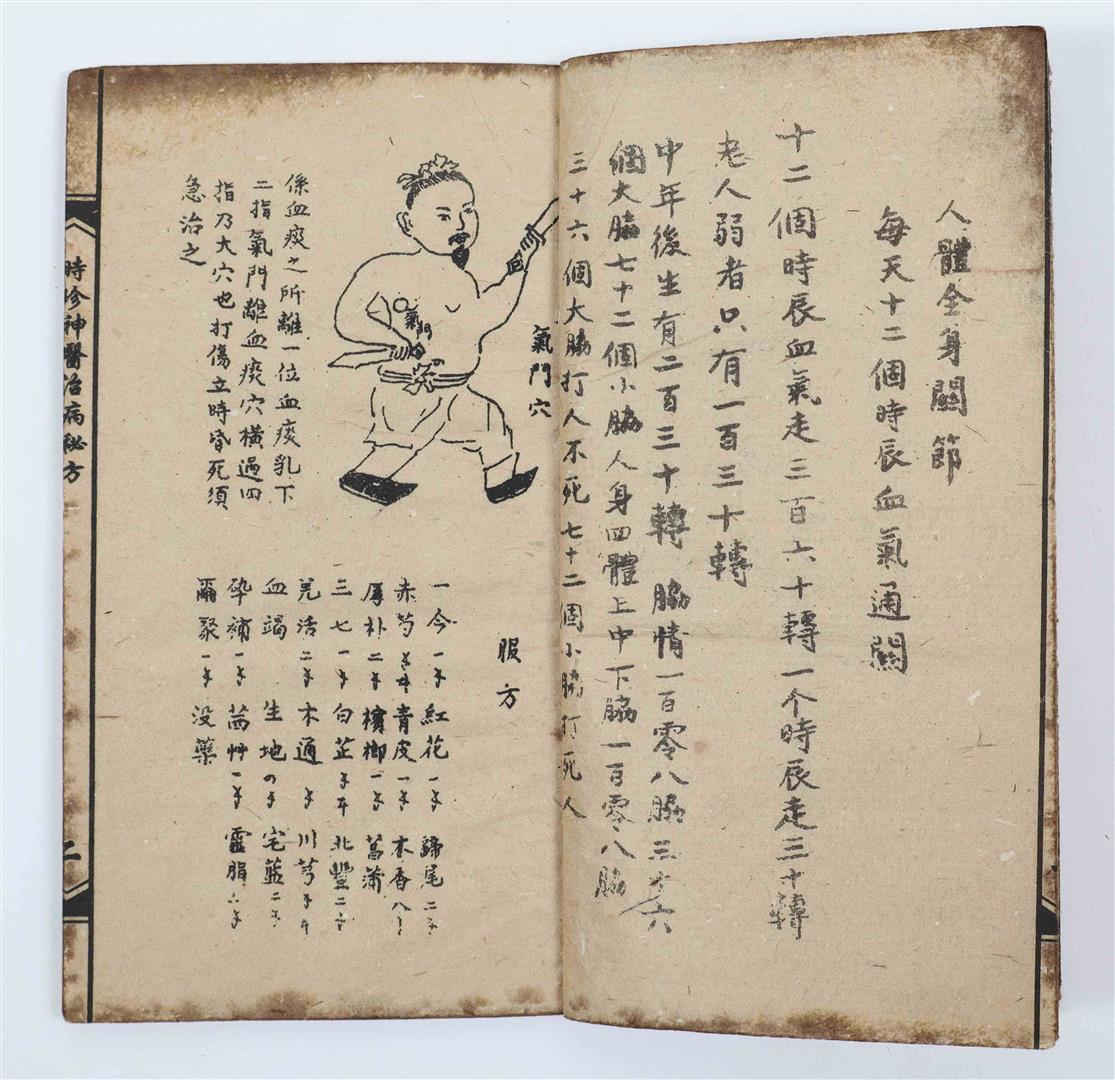 人體全身關節
每天十二個時辰血氣通關
十二個時辰血氣走三百六十轉一个時辰走三十轉
老人弱者只有一百三十轉
中年後生有二百三十轉脇情一百零八脇三十六
個大脇七十二個小脇人身四體上中下脇一百零八脇
三十六個大脇打人不死七十二個小脇打死人
氣門穴
氣門
係血痰之所離一位血痰乳下
二指氣門離血痰穴橫過四
指乃大穴也打傷立時昏死須
急治之
服方
一今一 紅花一 歸尾二
赤芍 青皮一 木香八
厚朴二 檳榔一 菖蒲
三七一 白芷 北豐二
羌活二 木通 川芎
血竭 生地 宅藍二
碎補一 茜艸一 靈脂六
爾聚一 没藥
時珍神醫治病秘方
二